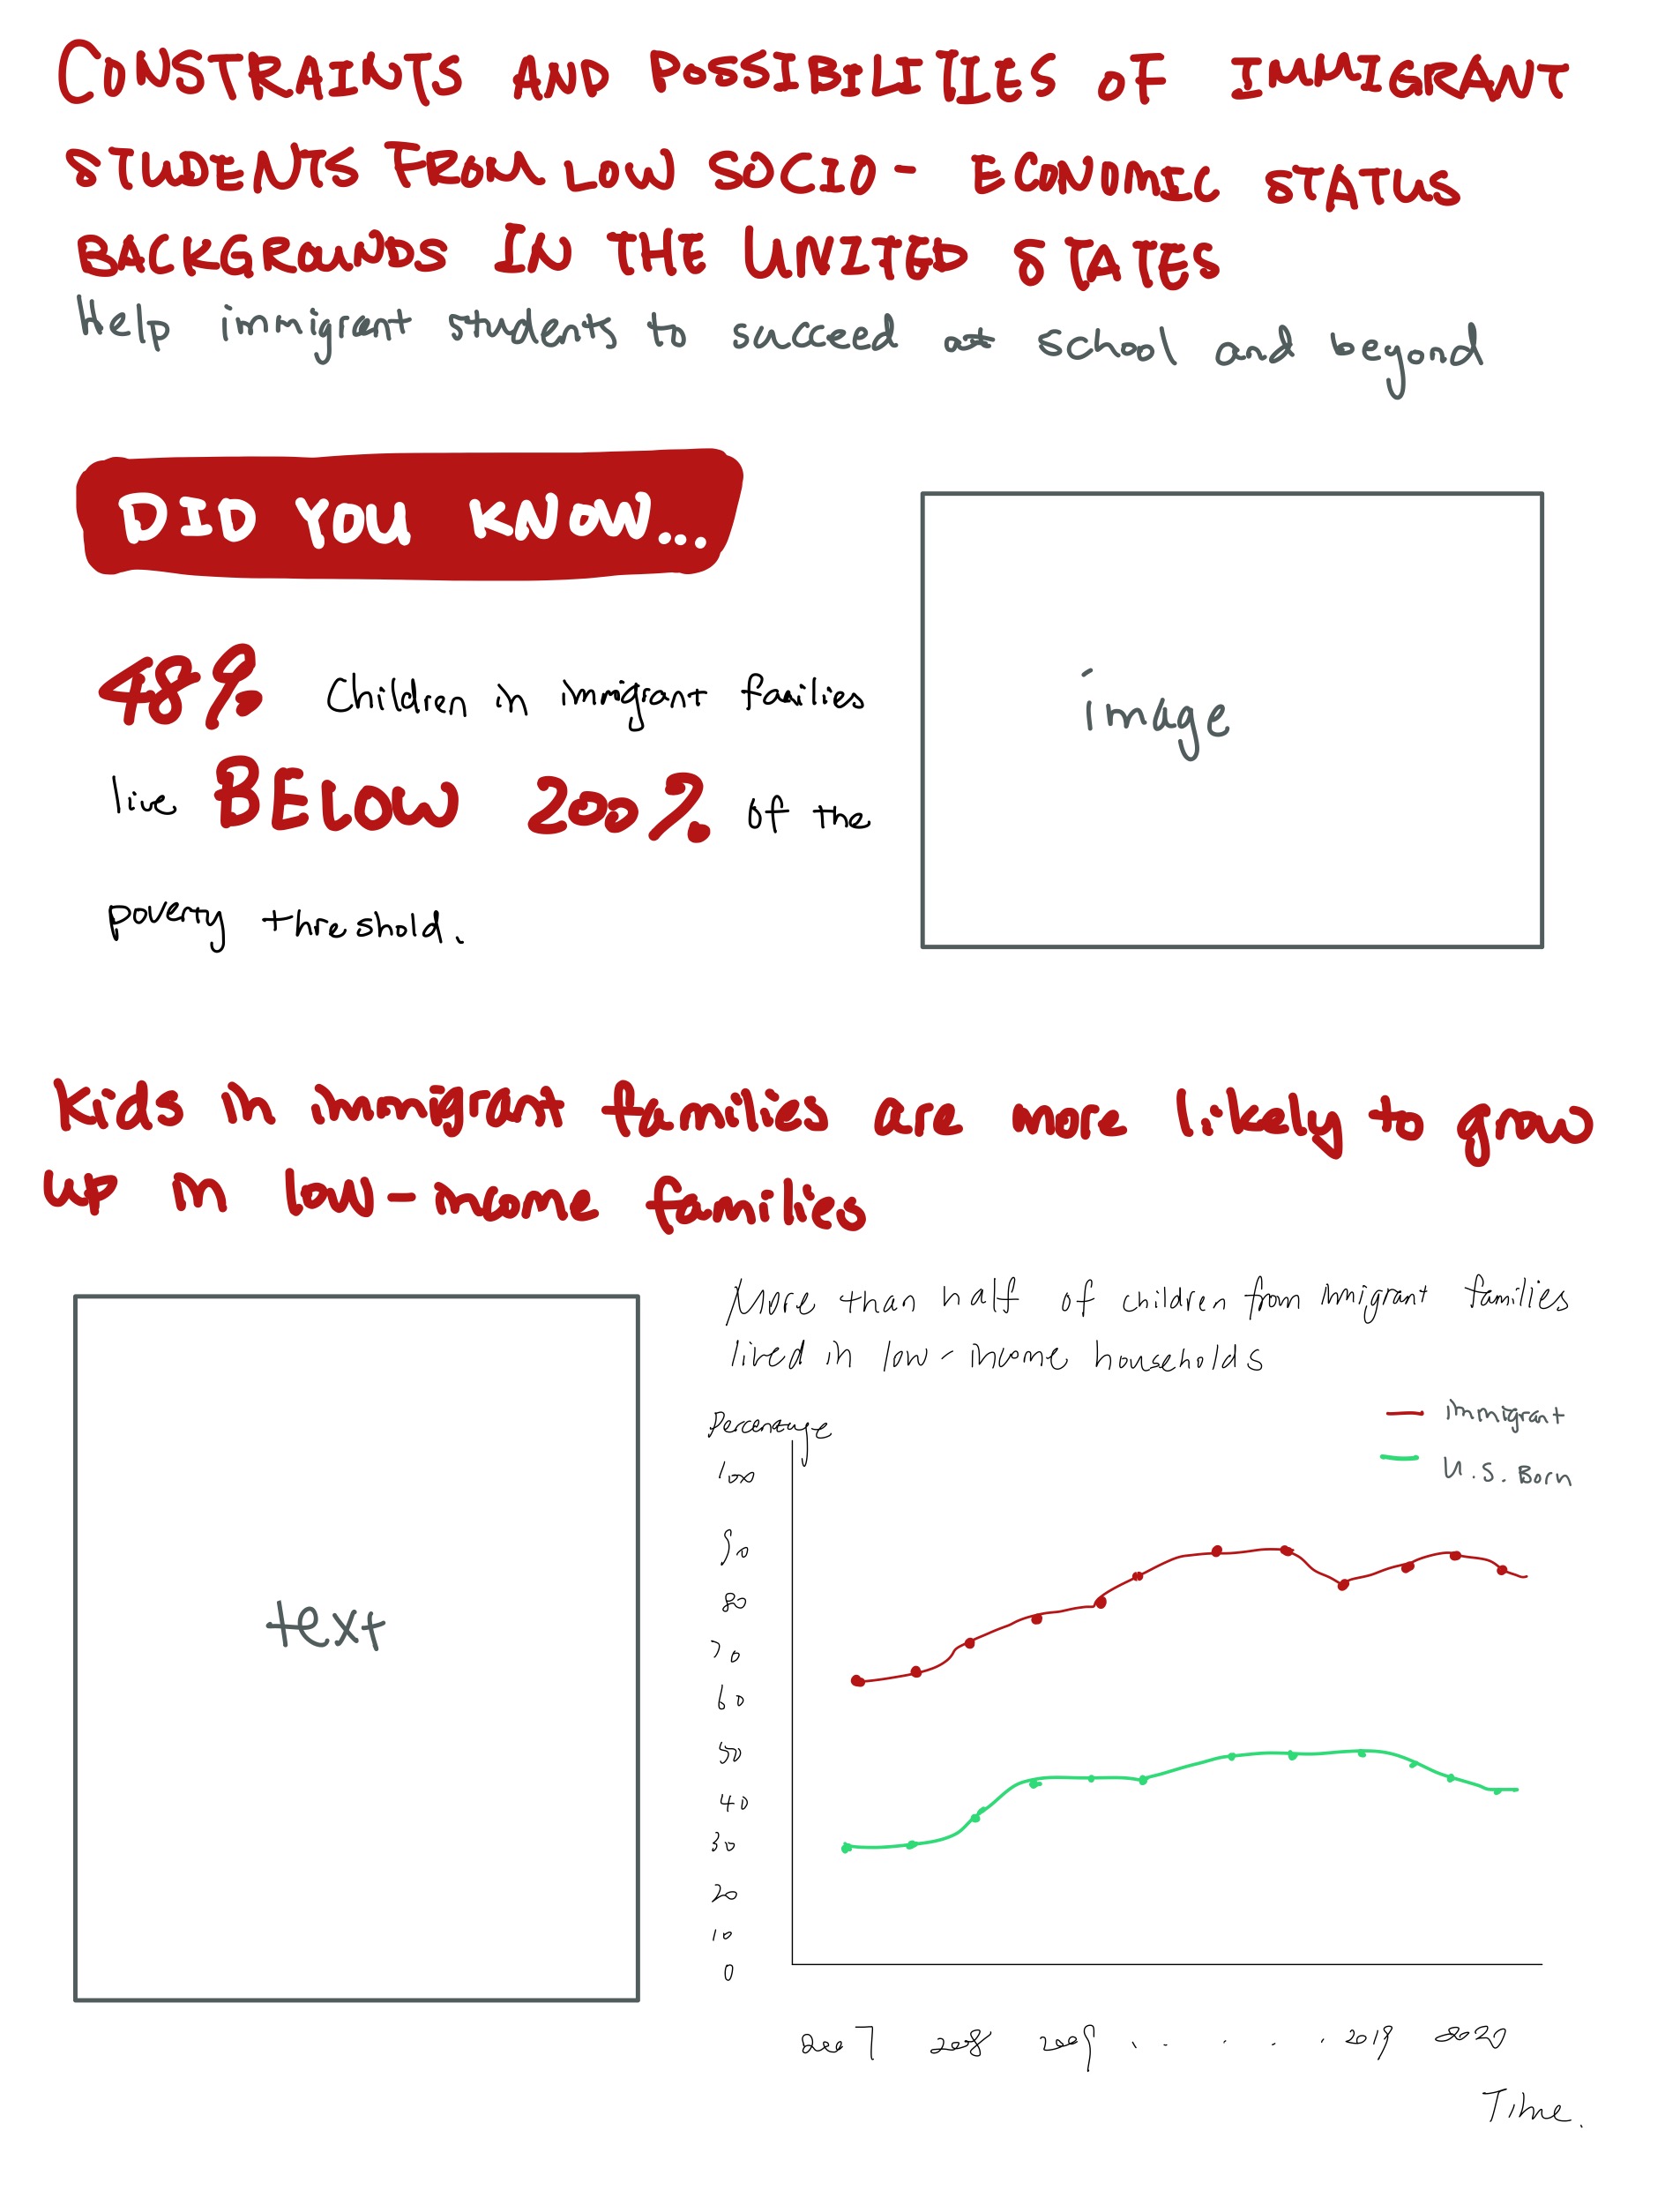 CONSTRAINTS AND POSSIBILITIES OF IMMIGRANT
STUDENTS FROM LOW SOCIO- ECONOMIC STATUS
BACKGROUNDS IN THE UNITED STATES
Help immigrant students to succeed at school and beyond
DID YOU KNOW...
48% Children in immigrant families
live BELOW 200% of the
poverty threshold.
Kids in immigrant families are more likely to grow
up in low-income families
image
text
More than half of children from immigrant families
lived in low-income households
Percentage
immigrant
U.S. Born
100
90
80
70
60
50
40
30
20
10
0
2007 2008 2009 . . . . . 2019 2020
Time.